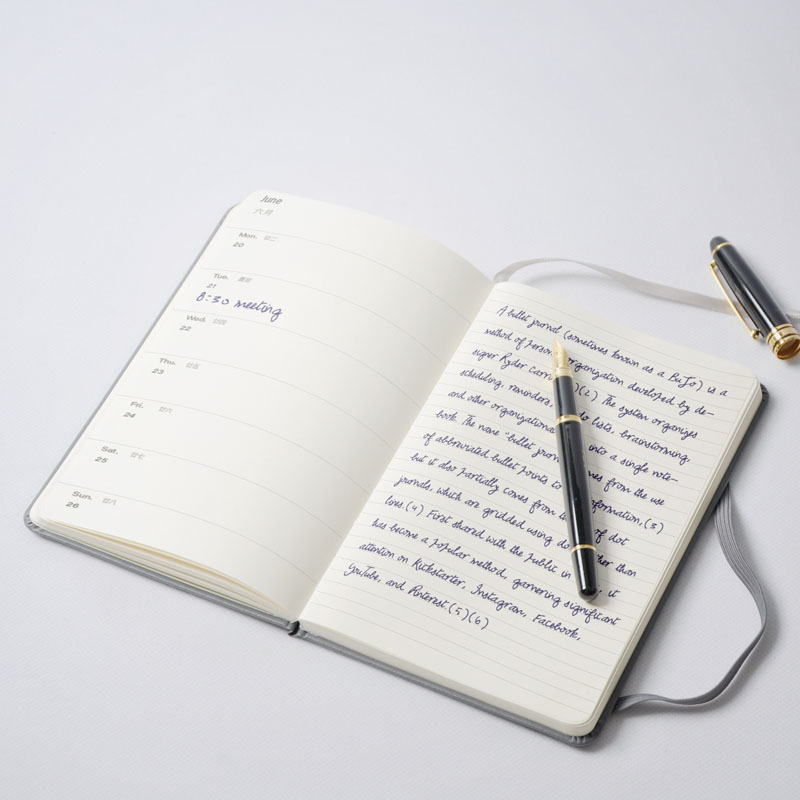 June
六月
Mon. 廿二
20
Tue. 夏至
21
8:30 meeting
Wed. 廿四
22
Thu. 廿五
23
Fri. 廿六
24
Sat. 廿七
25
Sun. 廿八
26
A bullet journal (sometimes known as a BuJo) is a
method of organization developed by de-
signer Ryder )(2) The system organizes
scheduling, reminders, do lists, brainstorming,
and other organizational into a single note-
book. The name "bullet from the use
of abbreviated bullet points to (3)
but it also partially comes from of dot
journals, which are gridded using than
lines.(4) First shared with the public in , it
has become a popular method, garnering significant
attention on Kickstarter, Instagram, Facebook,
YouTube, and Pinterest.(5)(6)